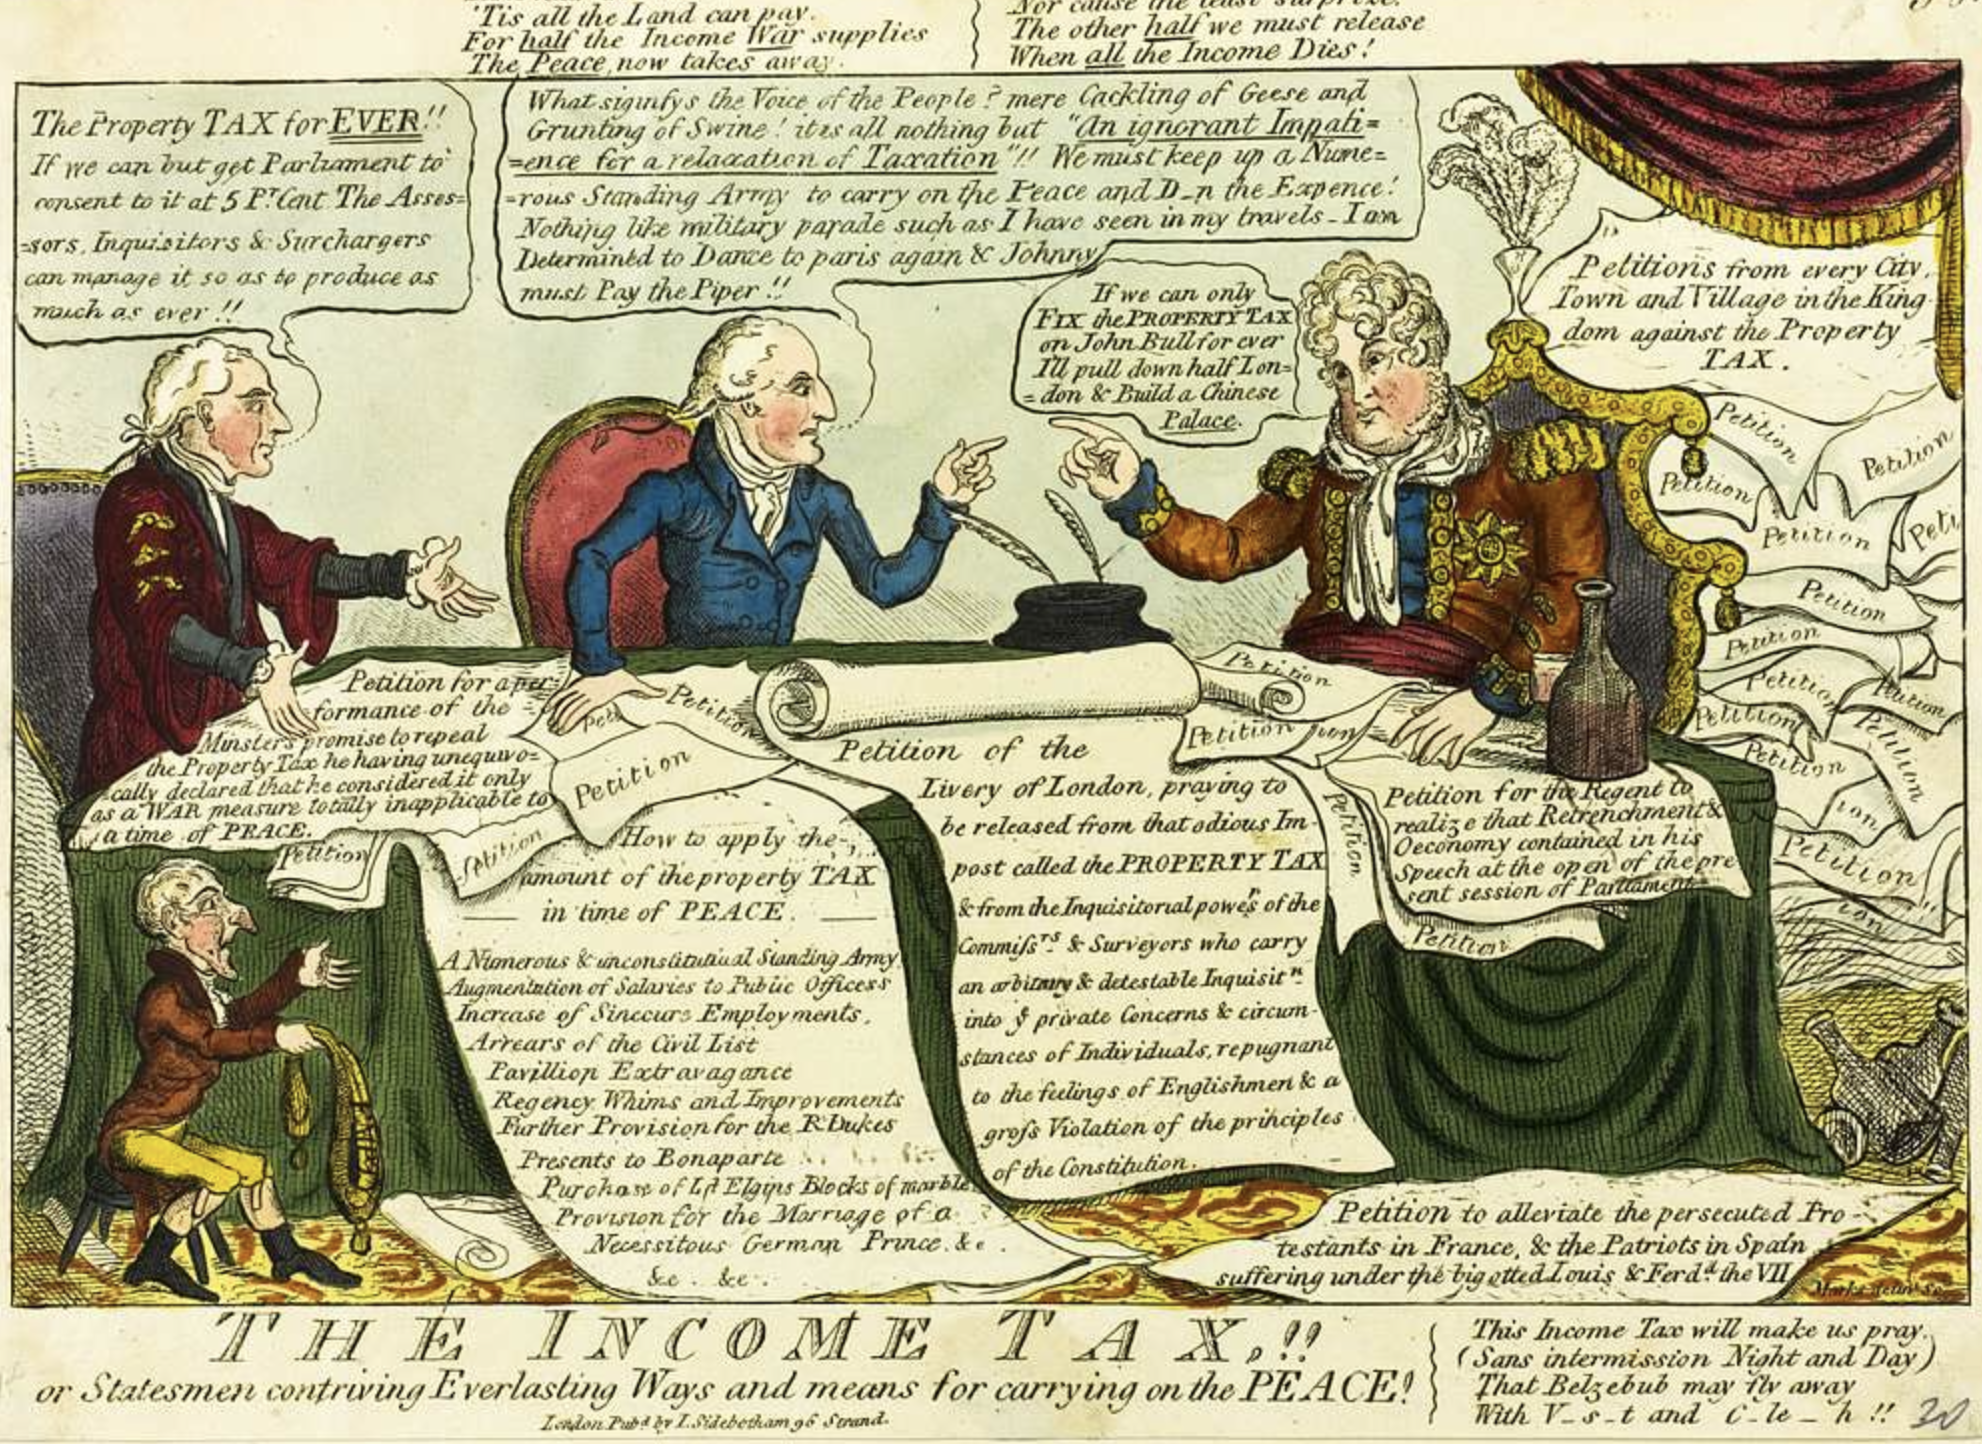 'Tis all the Land can pay.
For half the Income War supplies
The Peace, now takes away.
Nor cause the least surprize.
The other half we must release
When all the Income Dies!
The Property TAX for EVER!!
If we can but get Parliament to
consent to it at 5 Pr. Cent The Asses=
=sors, Inquisitors & Surchargers
can manage it so as to produce as
much as ever!!
What signifys the Voice of the People? mere Cackling of Geese and
Grunting of Swine! it is all nothing but "An ignorant Impati=
=ence for a relaxation of Taxation"!! We must keep up a Nume=
=rous Standing Army to carry on the Peace and D_n the Expence!
Nothing like military parade such as I have seen in my travels - I am
Determined to Dance to paris again & Johnny
must Pay the Piper!!
If we can only
FIX the PROPERTY TAX
on John Bull for ever
I'll pull down half Lon=
=don & Build a Chinese
Palace.
Petitions from every City,
Town and Village in the King
dom against the Property
TAX.
Petition
Petition
Petition
Petition
Peti
Petition
Petition
Petition
Petition
Petition
Petition
Petition
ion
Petition
ion
Petition for a per=
formance of the
Minsters promise to repeal
the Property Tax he having unequivo=
cally declared that he considered it only
as a WAR measure totally inapplicable to
a time of PEACE.
Petition
Petition
Peti
Petition
Petition
How to apply the
amount of the property TAX
in time of PEACE.
A Numerous & unconstitutiual Standing Army
Augmentation of Salaries to Public Officess
Increase of Sinecure Employments,
Arrears of the Civil List
Pavillion Extravagance
Regency Whims and Improvements
Further Provision for the R. Dukes
Presents to Bonaparte
Purchase of Ld Elgins Blocks of marble
Provision for the Marriage of a
Necessitous German Prince. &c.
&c. &c.
Petition of the
Livery of London, praying to
be released from that odious Im-
post called the PROPERTY TAX
& from the Inquisitorial powers of the
Commissrs. & Surveyors who carry
an arbitrary & detestable Inquisitn.
into ye private Concerns & circum-
stances of Individuals, repugnant
to the feelings of Englishmen & a
gross Violation of the prihciples
of the Constitution.
Petition
Petition
ion
Petition
Petition for the Regent to
realize that Retrenchment &
Oeconomy contained in his
Speech at the open of the pre
sent session of Parliament
Petition
Petition to alleviate the persecuted Pro-
testants in France, & the Patriots in Spain
suffering under the bigotted Louis & Ferdd. the VII
THE INCOME TAX,!!
or Statesmen contriving Everlasting Ways and means for carrying on the PEACE!
London Pubd. by I. Sidebotham 96 Strand.
This Income Tax will make us pray.
(Sans intermission Night and Day)
That Belzebub may fly away
With V_s_t and C_le_h!!
30